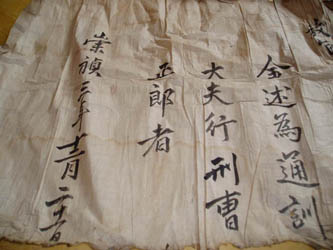 金述為通訓
大夫行刑曹
正郎者
崇禎三年十二月二十日